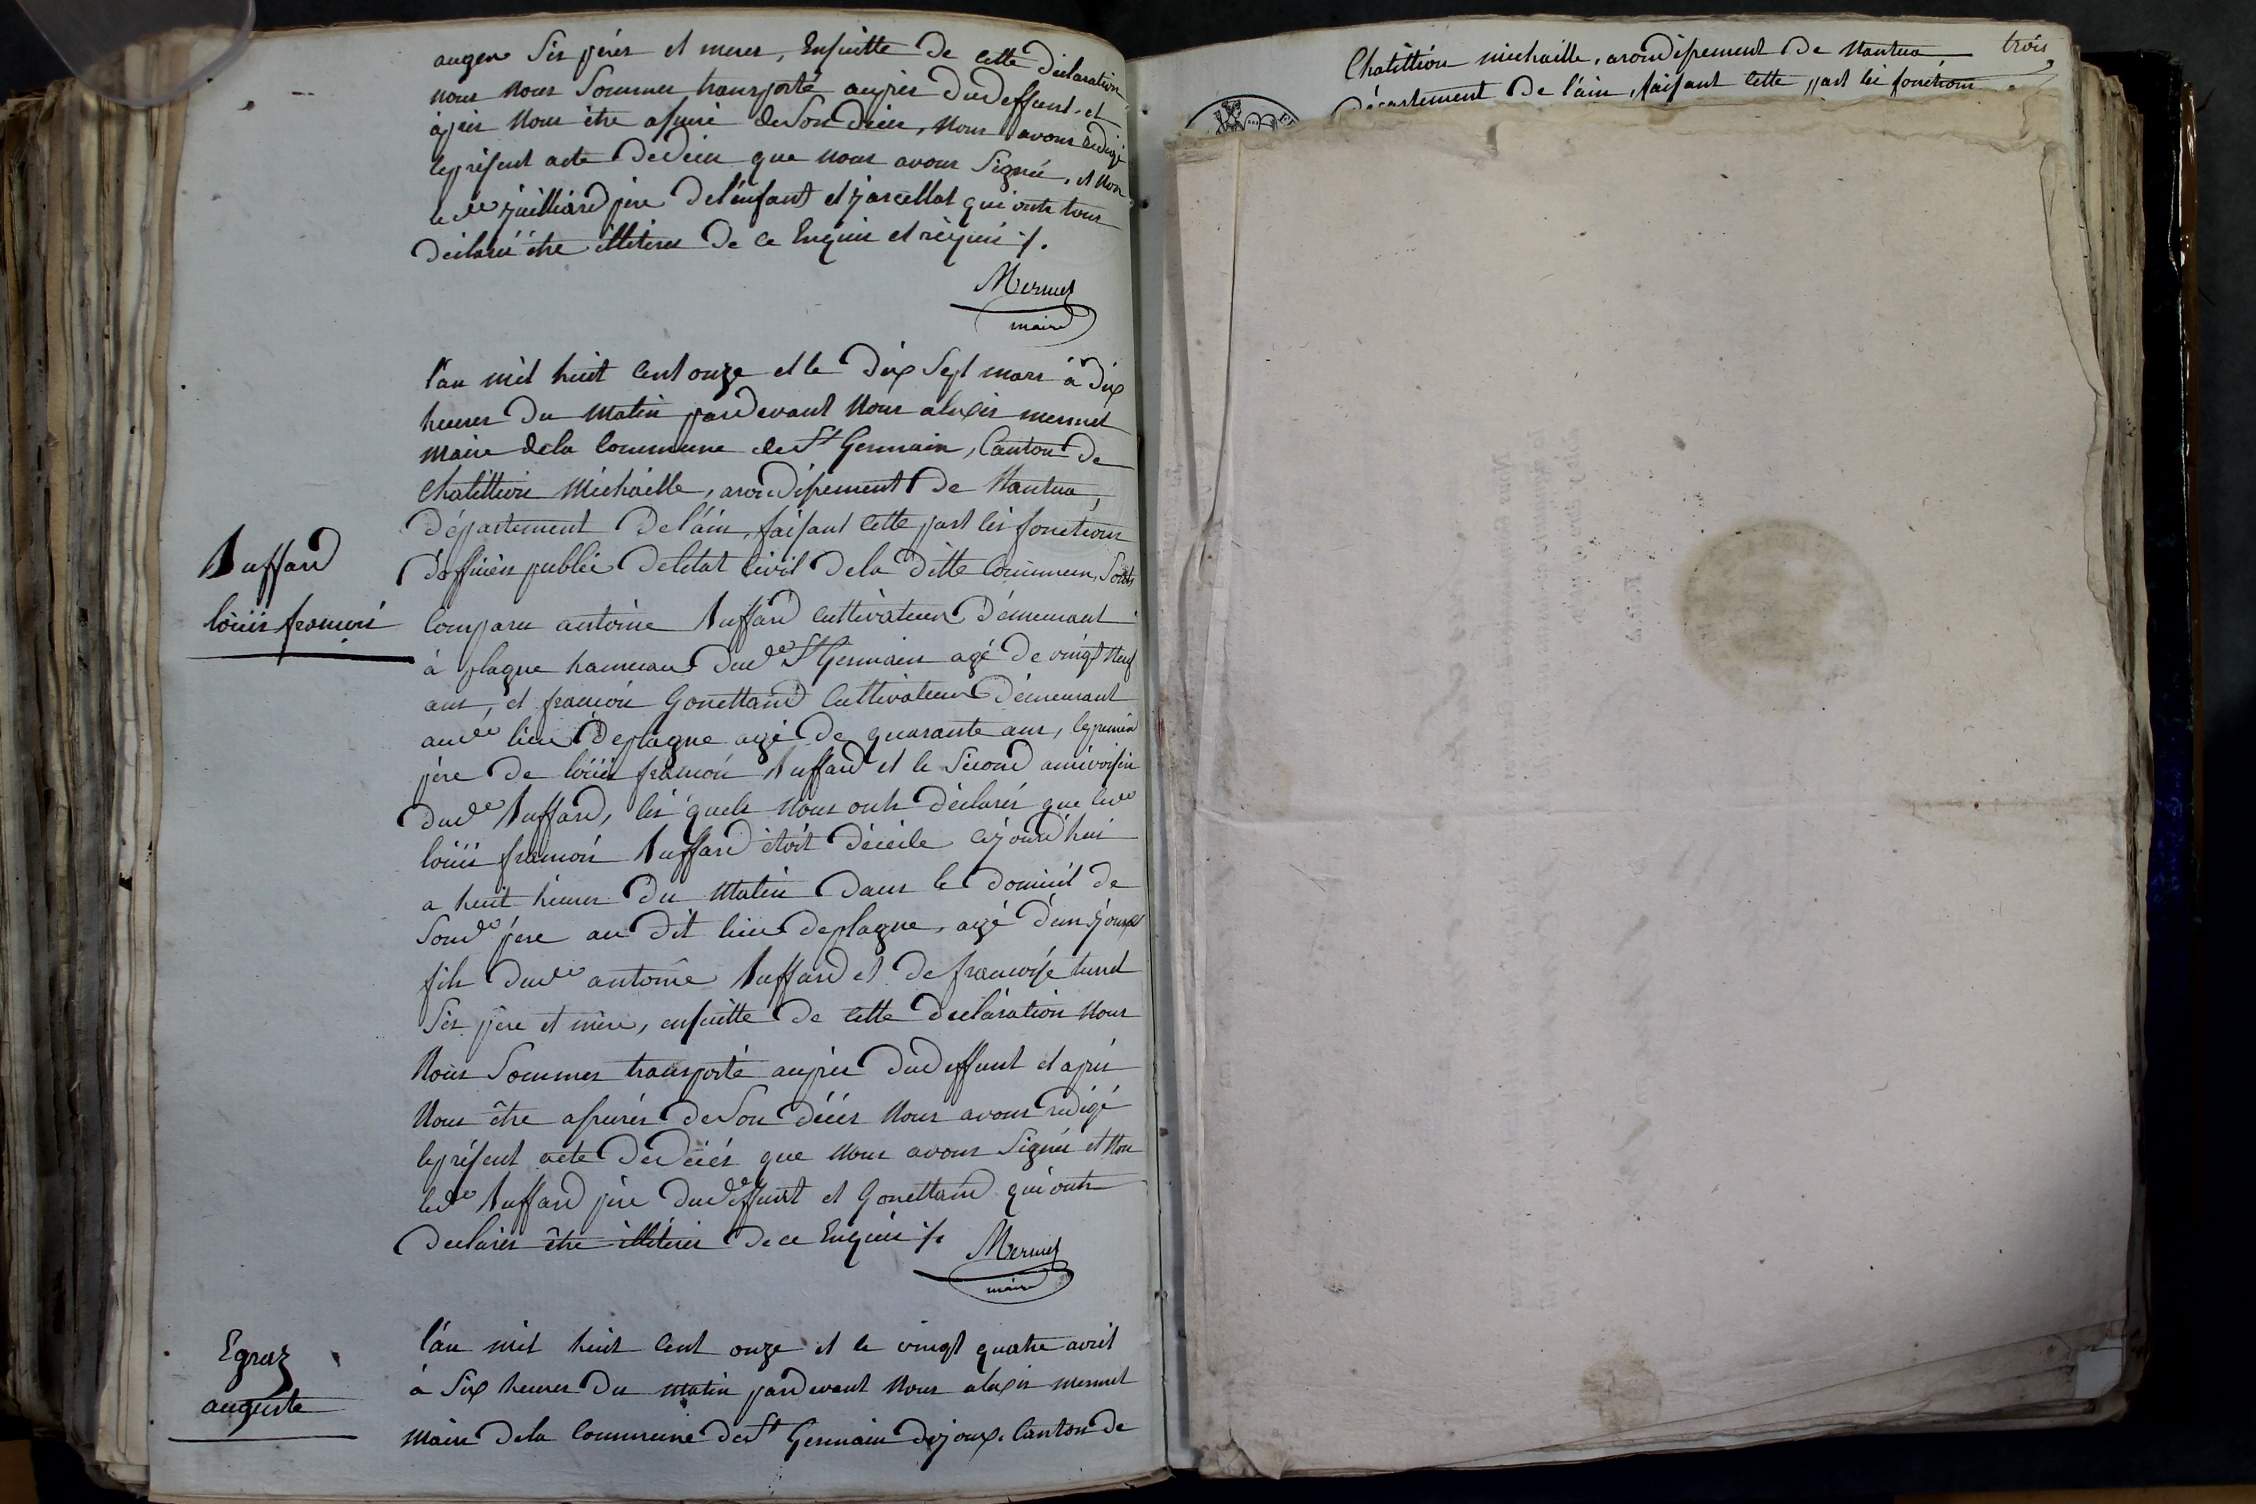 auger ses péres et meres, Ensuitte de cette déclaration,
nous nous sommes transporté auprès dudeffunt, et
àprès nous être assuré deson décés, nous avons redigé
leprésent acte dedécés que nous avons signé, et non
le dt juilliard père del'enfant et jarcellat qui onts tous
déclaré être illiterés de ce Enquis et requis ./.
Mermet
maire
l'an mil huit cent onze et le dix sept mars à dix
heures du matin pardevant nous alexis mermet
maire dela commune de St Germain, Canton de
Chatillion Michaille, arondissement de Nantua,
département de l'ain, faisant cette part les fonctions
d'officier public deletat civil dela ditte commune, sonts
Ruffard
loüis francois
comparu antoine Ruffard cultivateur démeurant
à plagne hameau dud St Germain agé de vingt neuf
ans, et francois Gonettand cultivateur démeurant
aud lieu deplagne agé de quarante ans, lepremier
père de loüis francois Ruffard et le second ami voisin
dud Ruffard, les quels nous onts déclarés que led
loüis francois Ruffard étoit décédé cejourd'hui
a huit heures du matin dans le domicil de
sond père au dit lieu deplagne, agé d'un jour
fils dud antoine Ruffard et de francoise
ses père et mère, ensuitte de cette declaration nous
Nous sommes transporté auprès dudeffunt et après
Nous être assurés deson décés nous avons redigé
leprésent acte dedécés que nous avons signés et non
led Ruffard père dudeffunt et Gonettand qui onts
declarés être illiterés de ce Enquis ./.
Mermet
maire
Egraz
auguste
l'an mil huit cent onze et le vingt quatre avril
à six heures du matin pardevant nous alexis mermet
maire dela commune de St Germain dejoux, Canton de
trois
Chatillion michaille, arondissement de Nantua
département de l'ain, faisant cette part les fonctions